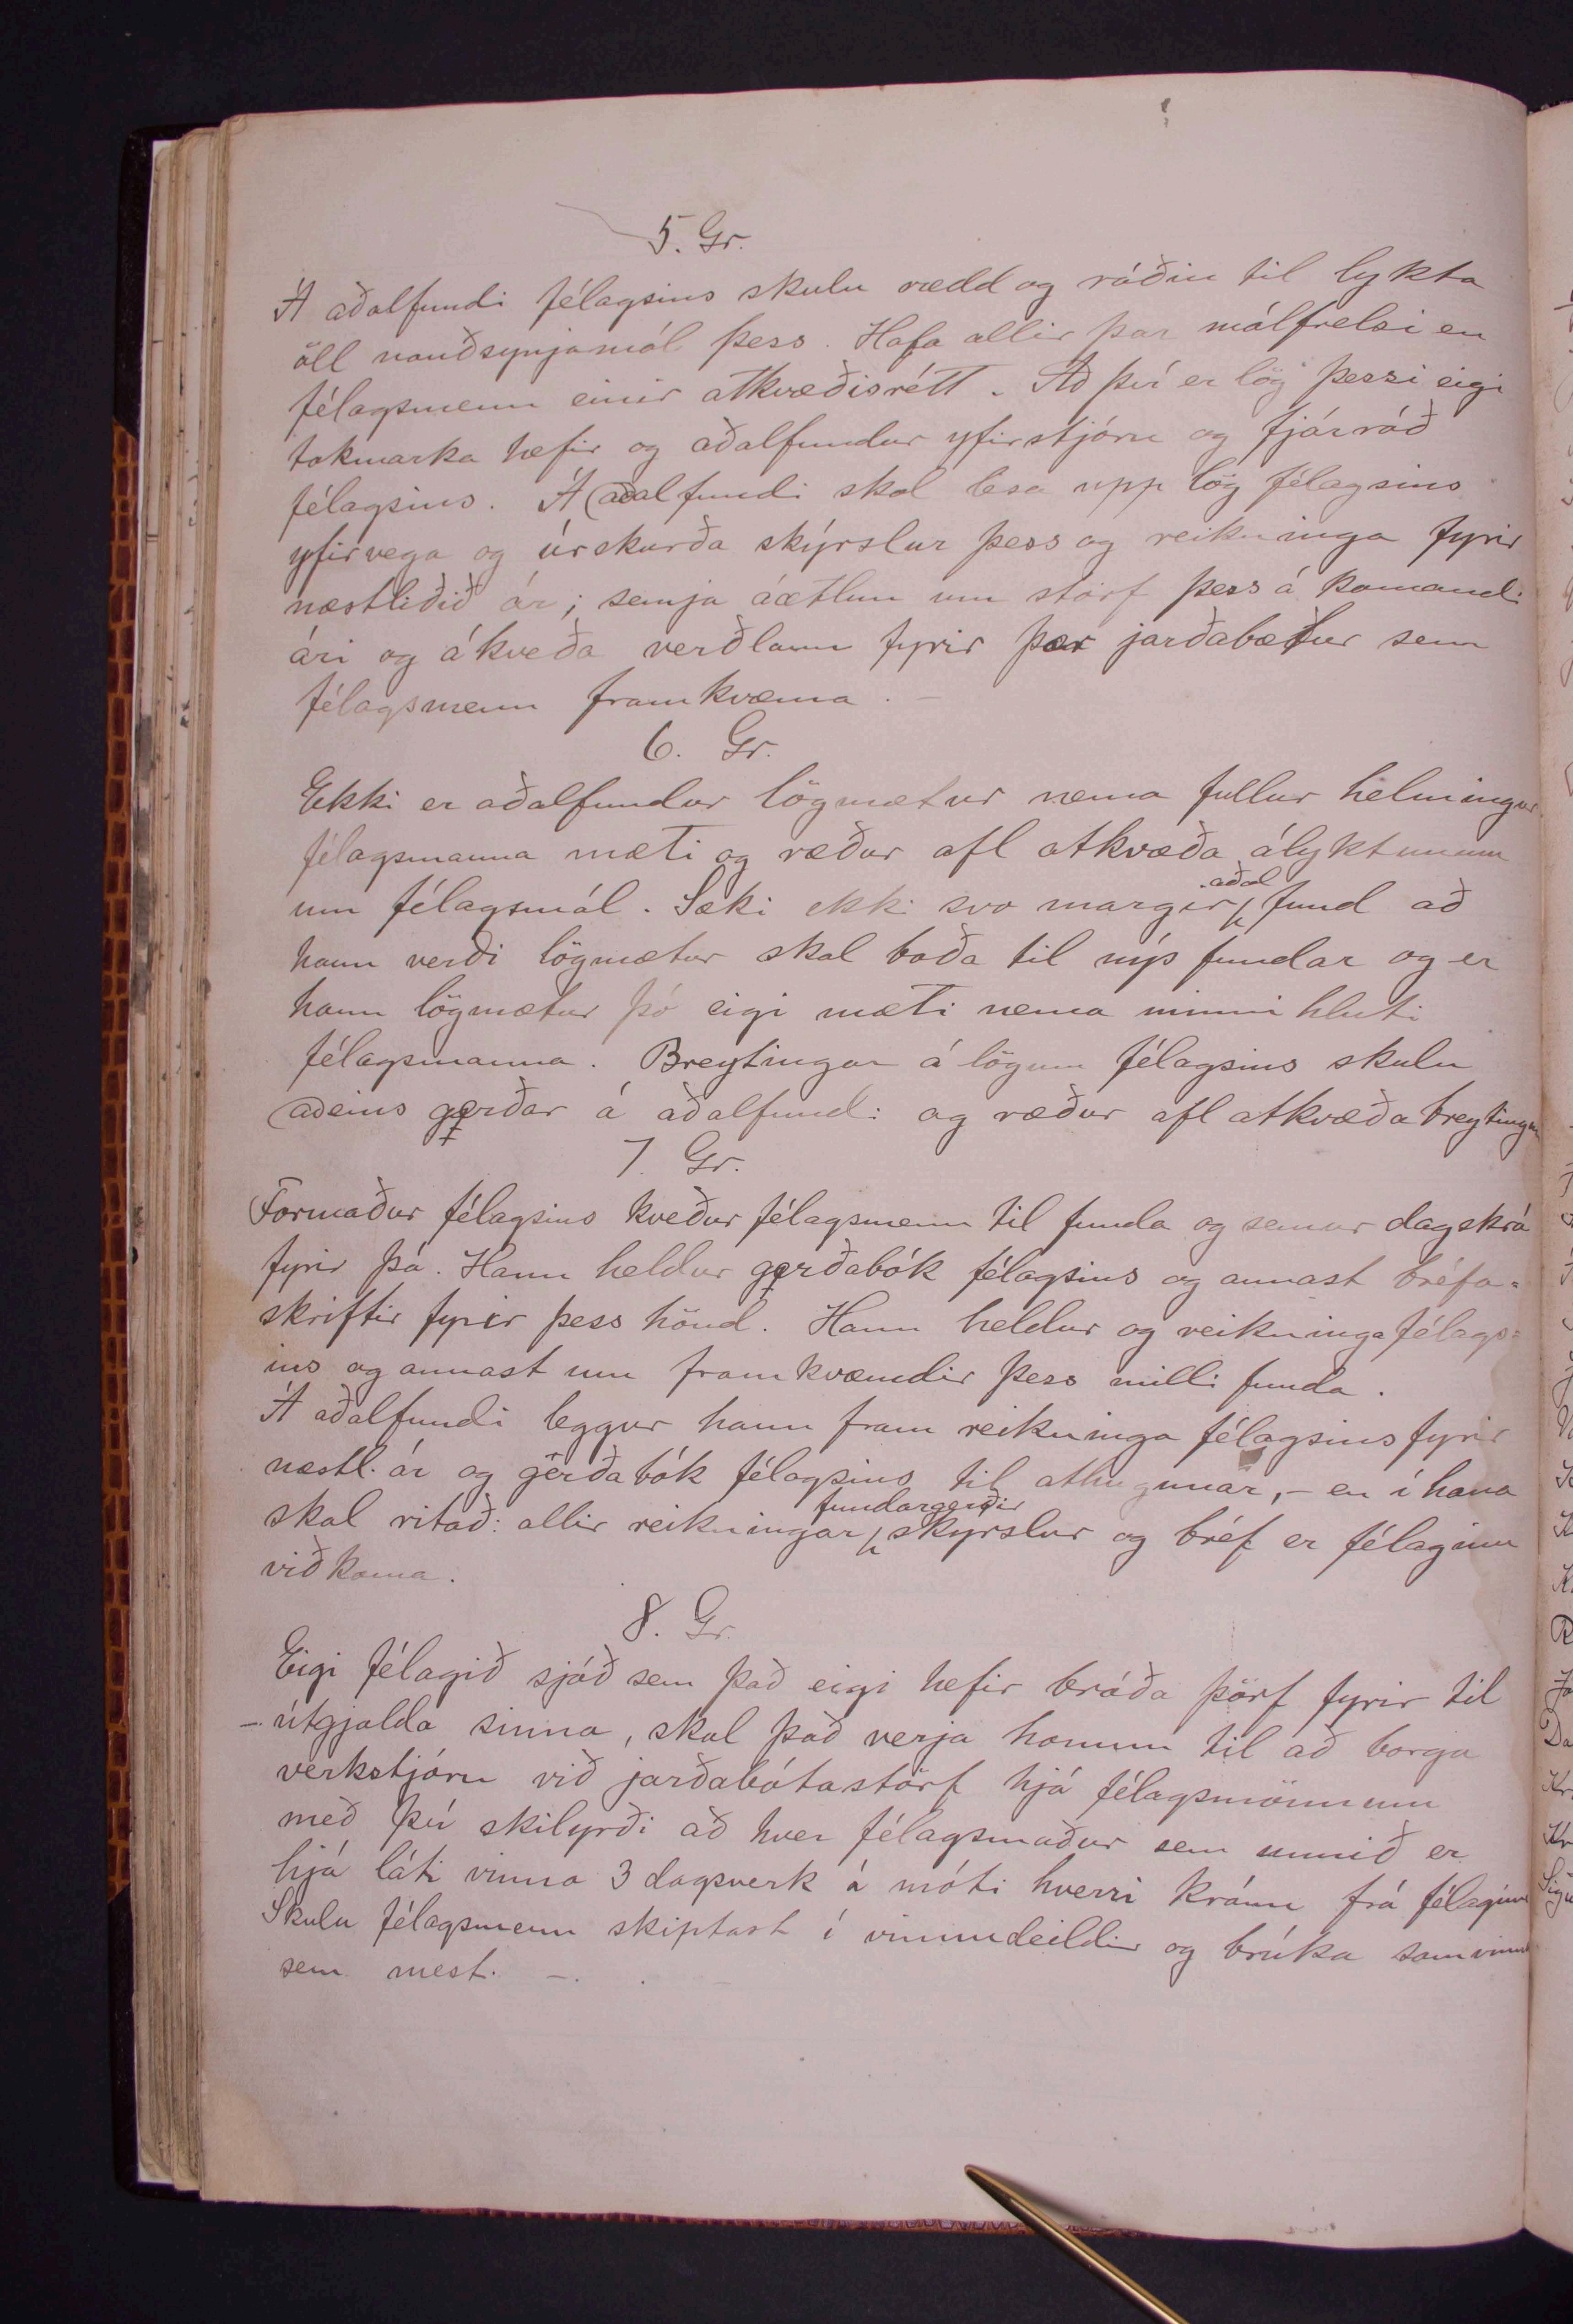 5. Gr.
Á aðalfundi félagsins skulu rædd og ráðin til lykta
öll nauðsynjamál þess. Hafa allir þar málfrelsi en
félagsmenn einir atkvæðisrétt. Að því er lög þessi eigi
takmarka hefir og aðalfundur yfirstjórn og fjárráð
félagsins. Á aðalfundi skal lesa upp lög félagsins
yfirvega og úrskurða skýrslur þess og reikninga fyrir
næstliðið ár; semja áætlun um störf þess á komandi
ári og ákveða verðlaun fyrir þær jarðabætur sem
félagsmenn framkvæma. –
6. Gr.
Ekki er aðalfundur lögmætur nema fullur helmingur
félagsmanna mæti og ræður afl atkvæða ályktunum
um félagsmál. Sæki ekki svo margir aðalfund að
hann verði lögmætur skal boða til nýs fundar og er
hann lögmætur þó eigi mæti nema minni hluti
félagsmanna. Breytingar á lögum félagsins skulu
aðeins gerðar á aðalfundi og ræður afl atkvæða breytingum
7. Gr.
Formaður félagsins kveður félagsmenn til funda og semur dagskrá
fyrir þá. Hann heldur gerðabók félagsins og annast bréfa=
skriftir fyrir þess hönd. Hann heldur og reikninga félags=
ins og annast um framkvæmdir þess milli funda.
Á aðalfundi leggur hann fram reikninga félagsins fyrir
næstl. ár og gerðabók félagsins til athugunar, – en í hana
skal ritað: allir reikningar fundargerðir skyrslur og bréf er félaginu
viðkoma.
8. Gr.
Eigi félagið sjóð sem það eigi hefir bráða þörf fyrir til
útgjalda sinna, skal það verja honum til að borga
verkstjórn við jarðabótastörf hjá félagsmönnum
með því skilyrði að hver félagsmaður sem unnið er
hjá láti vinna 3 dagsverk á móti hverri krónu frá félaginu
Skulu félagsmenn skiptast í vinnudeildir og brúka samvinnu
sem mest. –